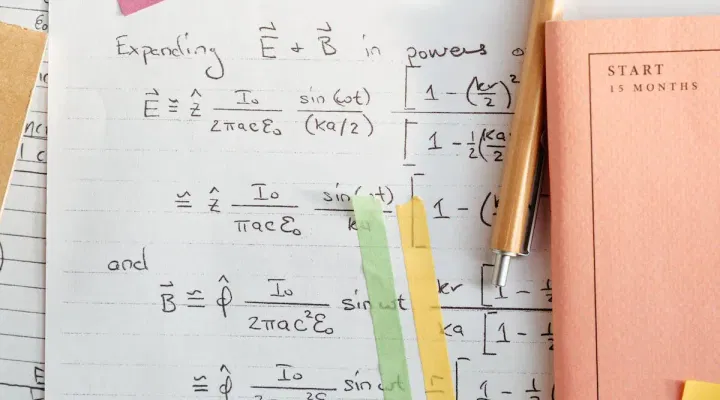 Expanding E⃗ + B⃗ in powers
E⃗ ≅ ẑ I₀/(2πacε₀) sin(ωt)/(ka/2) [1 - (kr/2)²]/[1 - ½(ka/2)
≅ ẑ I₀/(πacε₀) sin(ωt)/ka [1 - (
and
B⃗ ≅ φ̂ I₀/(2πac²ε₀) sin ωt kr/ka [1 - ½]/[1 - ½]
≅ φ̂ I₀ sin ωt [1 - ½
START
15 MONTHS